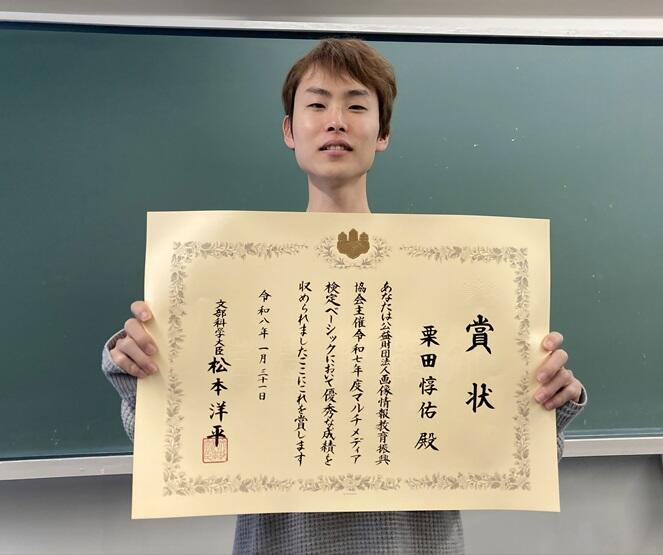 賞状
栗田惇佑 殿
あなたは公益財団法人画像情報教育振興
協会主催令和七年度マルチメディア
検定ベーシックにおいて優秀な成績を
収められましたここにこれを賞します
令和八年一月三十一日
文部科学大臣 松本洋平